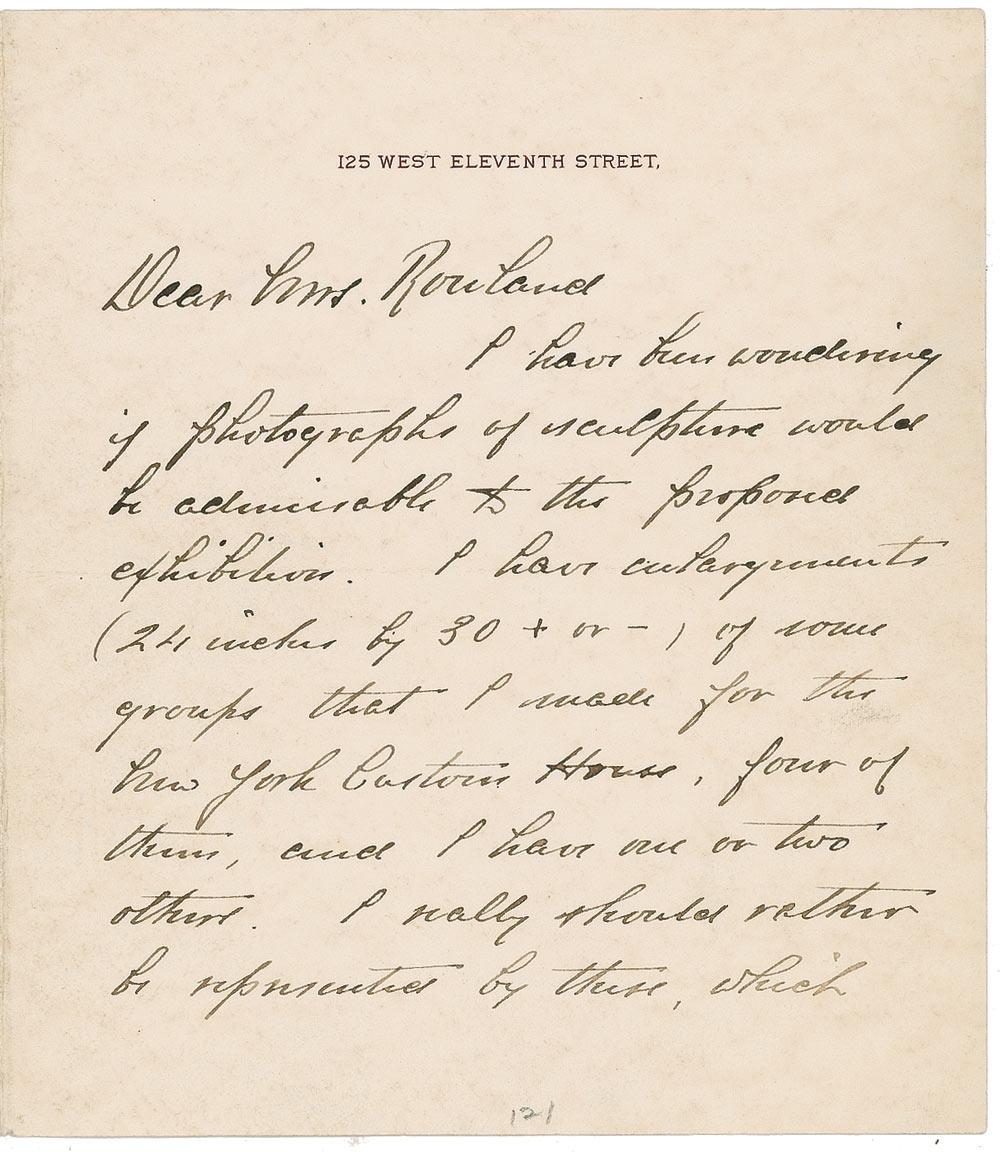 125 WEST ELEVENTH STREET,
Dear Mrs. Rowland
I have been wondering
if photographs of sculpture would
be admissable to the proposed
exhibition. I have enlargements
(24 inches by 30 + or -) of some
groups that I made for the
New York Custom House, four of
them, and I have one or two
others. I really should rather
be represented by these, which
121